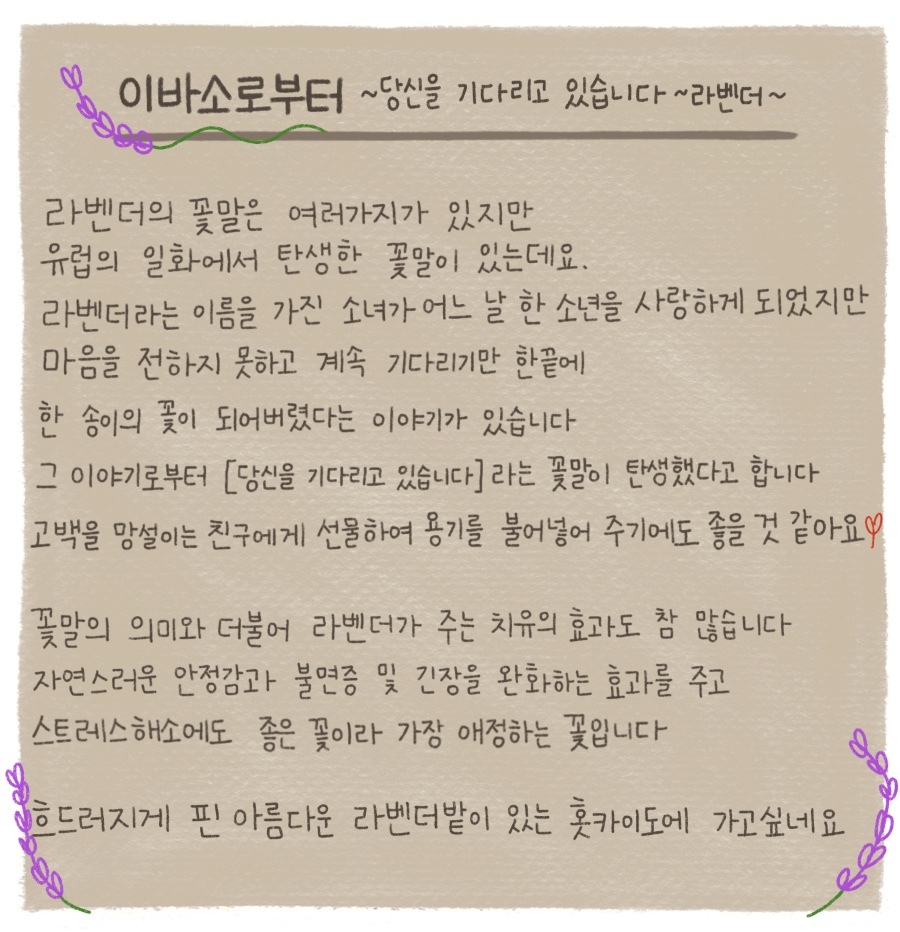 이바소로부터 ~당신을 기다리고 있습니다 ~라벤더~
라벤더의 꽃말은 여러가지가 있지만
유럽의 일화에서 탄생한 꽃말이 있는데요.
라벤더라는 이름을 가진 소녀가 어느 날 한 소년을 사랑하게 되었지만
마음을 전하지 못하고 계속 기다리기만 한끝에
한 송이의 꽃이 되어버렸다는 이야기가 있습니다
그 이야기로부터 [당신을 기다리고 있습니다] 라는 꽃말이 탄생했다고 합니다
고백을 망설이는 친구에게 선물하여 용기를 불어넣어 주기에도 좋을 것 같아요
꽃말의 의미와 더불어 라벤더가 주는 치유의 효과도 참 많습니다
자연스러운 안정감과 불면증 및 긴장을 완화하는 효과를 주고
스트레스해소에도 좋은 꽃이라 가장 애정하는 꽃입니다
흐드러지게 핀 아름다운 라벤더밭이 있는 홋카이도에 가고싶네요